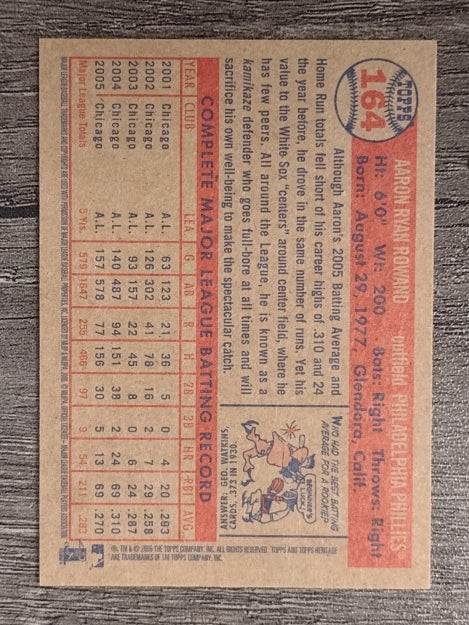 TOPPS
164
AARON RYAN ROWAND outfield PHILADELPHIA PHILLIES
Ht: 6'0" Wt: 200 Bats: Right Throws: Right
Born: August 29, 1977, Glendora, Calif.
Although Aaron's 2005 Batting Average and
Home Run totals fell short of his career highs of .310 and 24
the year before, he drove in the same number of runs. Yet his
value to the White Sox "centers" around center field, where he
has few peers. All around the League, he is known as a
kamikaze defender who goes full-bore at all times and will
sacrifice his own well-being to make the spectacular catch.
WHO HAD THE BEST BATTING
AVERAGE FOR A ROOKIE?
BEGINNER'S
LUCK!
ANSWER: GEO. WATKINS,
CARDS, .373 IN 1930.
COMPLETE MAJOR LEAGUE BATTING RECORD
YEAR CLUB LEA G AB R H 2B 3B HR RBI AVG.
2001 Chicago A.L. 63 123 21 36 5 0 4 20 .293
2002 Chicago A.L. 126 302 41 78 16 2 7 29 .258
2003 Chicago A.L. 93 157 22 45 8 0 6 24 .287
2004 Chicago A.L. 140 487 94 151 38 2 24 69 .310
2005 Chicago A.L. 157 578 77 156 30 5 13 69 .270
Major League Totals 5 Yrs. 579 1647 255 466 97 9 54 211 .283
®& TM & © 2006 THE TOPPS COMPANY, INC. ALL RIGHTS RESERVED. TOPPS AND TOPPS HERITAGE
ARE TRADEMARKS OF THE TOPPS COMPANY, INC.